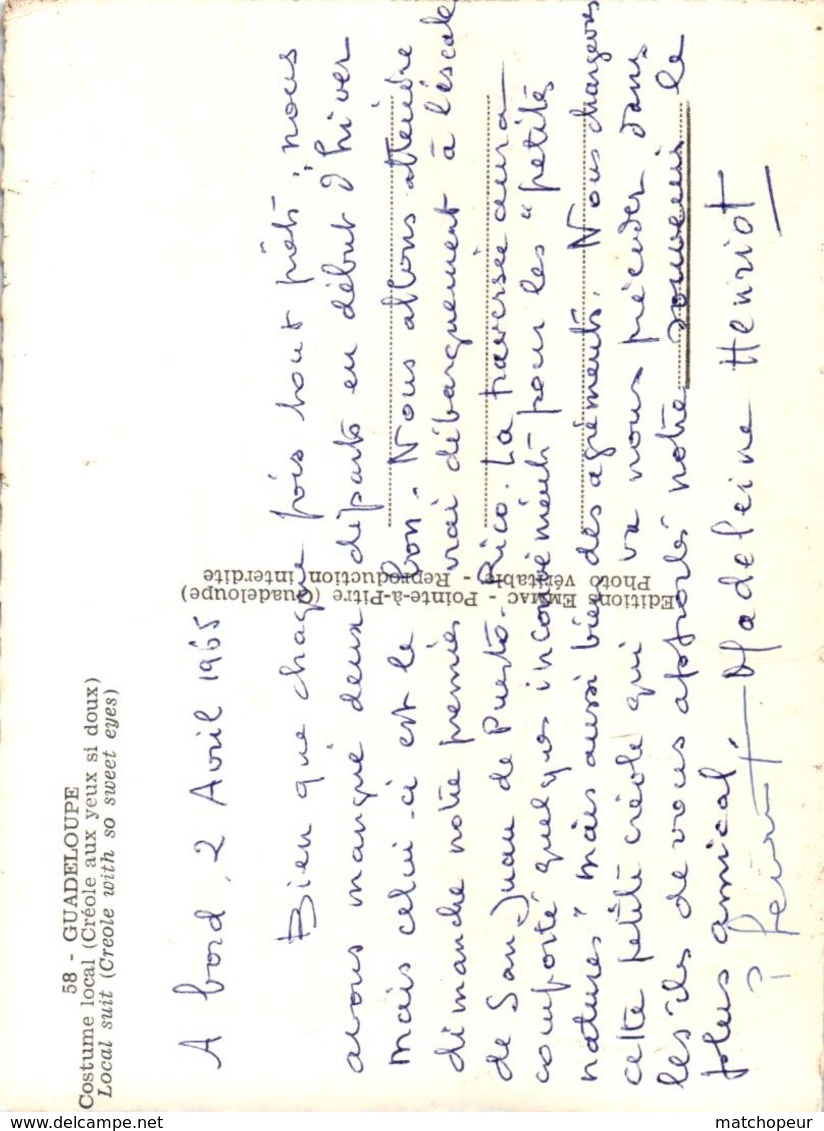 58 - GUADELOUPE
Costume local (Créole aux yeux si doux)
Local suit (Creole with so sweet eyes)
A bord, 2 Avril 1965
Bien que chaque fois tout prêts, nous
avons manqué deux départs en début d'hiver
mais celui-ci est le bon. Nous allons attendre
dimanche notre premier vrai débarquement à l'éscale
de San Juan de Puerto-Rico. La traversée aura
comporté quelques inconvénients pour les "petites
natures" mais aussi bien des agréments. Nous chargeons
cette petite créole qui va nous précéder dans
les îles de vous apporter notre souvenir le
plus amical.
Madeleine Henriot
Editions EMMAC - Pointe-à-Pitre (Guadeloupe)
Photo véritable - Reproduction interdite
matchopeur